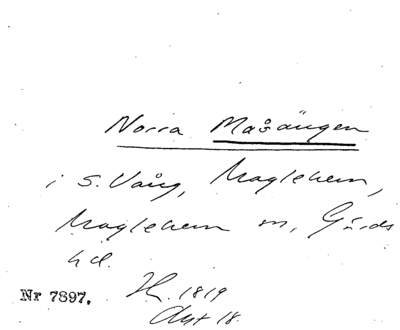 Norra Måsängen
i S. Vång, Maglehem,
Maglehem sn, Gärds
hd.
Nr 7897.
H. 1819
Akt 18.